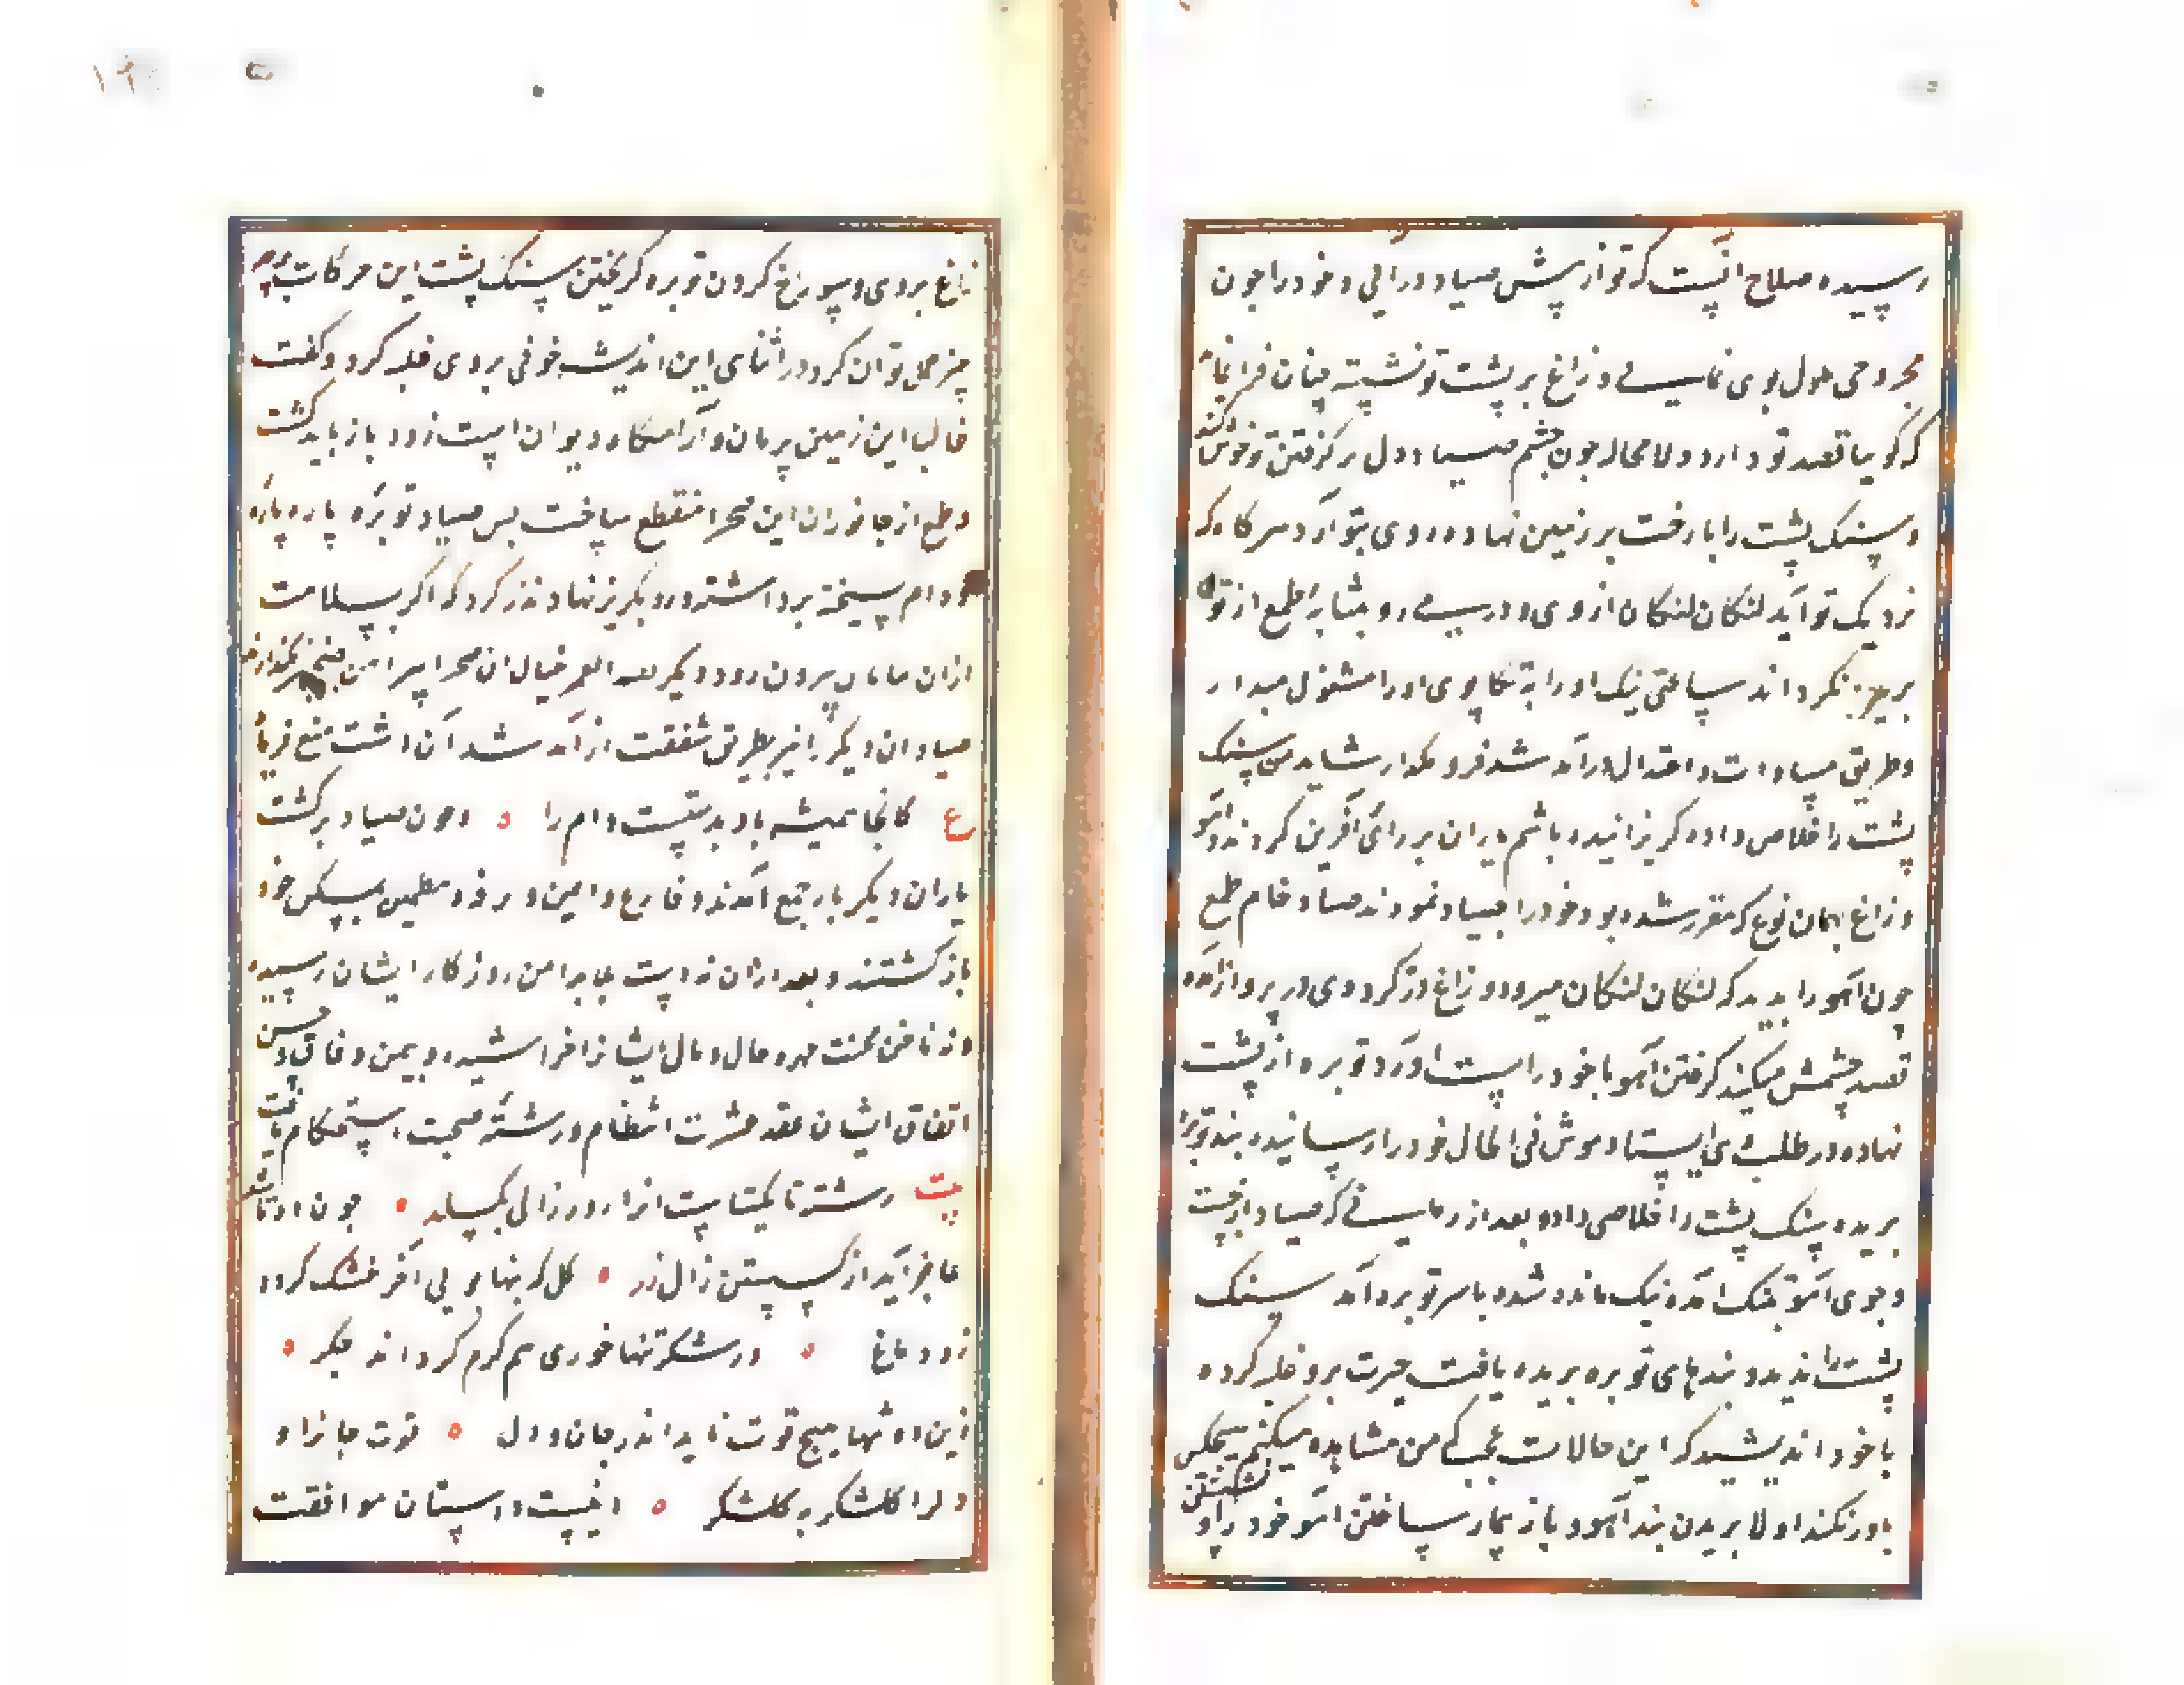 رسیده صلاح انست که تو از پیش صیاد درآئی و خود را چون
مجروحی ملول بوی نمایی و زاغ بر پشت تو نشسته چنان فرا نماید
که گویا قصد تو دارد ولامحاله چون چشم صیاد دل بر گرفتن تو خوش کند
و سنک پشت را با رخت بر زمین نهاده روی بتو آرد هر گاه که
نزدیک تو آید لنگان لنگان از وی دور میرو بمثابهٔ طمع از تو
بریده نگرداند ساعتی نیک او را به تکاپوی او را مشغول میدار
و طریق مساوات و اعتدال در آمد شد فرو مگذار شاید من سنک
پشت را خلاص داده گریزانیده باشم یاران بر رای آفرین کردند و آهو
و زاغ بهمان نوع که مقرر شده بود خود را بصیاد نمودند صیاد خام طمع
چون آهو را بدید که لنگان لنگان میرود و زاغ در گرد وی در پرواز آمده
قصد چشمش میکند گرفتن آهو با خود راست آورد و توبره از پشت
نهاده در طلب وی ایستاد موش فی الحال خود را رسانیده بند توبره
بریده سنک پشت را خلاصی داد و بعد از زمانی که صیاد از جست
و جوی آهو بتنک آمده نیک مانده شده با سر توبره آمد سنک
پشت را ندید و بندهای توبره بریده یافت حیرت برو غلبه کرده
با خود اندیشید که این حالات عجب که من مشاهده میکنم هیچکس
باور نکند اولا بریدن بند آهو و باز بیمار ساختن آهو خود را و نشستن
زاغ بر وی و سوراخ کردن توبره گریختن سنک پشت این حرکات بر چه
چیز حمل توان کرد در اثنای این اندیشه خوفی بروی غلبه کرد و گفت
غالبا این زمین پریان و آرامگاه دیوان است زود باز باید گشت
و طمع از جانوران این صحرا منقطع ساخت پس صیاد توبره پاره پاره
و دام سیخته برداشته رو بگریز نهاد و نذر کرد که اگر بسلامت
ازان بیابان بیرون رود دیگر بقیه العمر خیال ان صحرا پیرامن ضمیر نگذارد
صیادان دیگر را نیز بطریق شفقت از آمد شد آن دشت منع فرماید
ع کانجا همیشه باد بدستست دام را و چون صیاد برگشت
یاران دیگر بار جمع آمدند و فارغ و ایمن و مرفه و مطمین بمسکن خود
باز گشتند و بعد ازان نه دست بلا بدامن روزگار ایشان رسیده
و نه ناخن محنت چهره حال و مال ایشانرا خراشیده و بیمن وفاق و حسن
اتفاق ایشان عقد عشرت انتظام و رشتهٔ صحبت استحکام یافت
بیت رشته تا یکتاست انرا زور زالی بگسلد چون دوتا شد
عاجز آید از گسستن زال زر گل که تنها بویی آخر خشک گردد
زو دماغ ور شکر تنها خوری هم گرم گرداند جگر
زین دو تنها هیچ قوت ناید اندر جان و دل قوت جانرا و
دلرا گلشکر به گلشکر اینست داستان موافقت